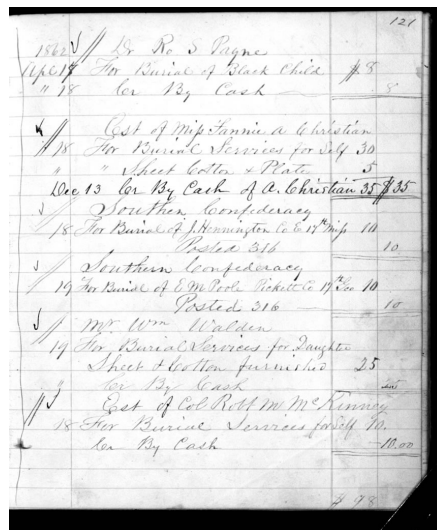 121
1862 Dr Ro S Payne
Apl 17 For Burial of Black Child $8
" 18 Cr By Cash 8
Est of Miss Fannie A Christian
18 For Burial Services for Self 30
" " Sheet Cotton & Plate 5
Dec 13 Cr By Cash of A. Christian 35 $35
Southern Confederacy
18 For Burial of J. Hennington Co E 17th Miss 10
Posted 316 10
Southern Confederacy
19 For Burial of E M Poole Pickett Co 17th Geo 10
Posted 316 10
Mr Wm Walden
19 For Burial Services for Daughter
Sheet & Cotton furnished 25
" Cr By Cash
Est of Col Robt M McKinney
18 For Burial Services for Self 10.
Cr By Cash 10.00
$ 98